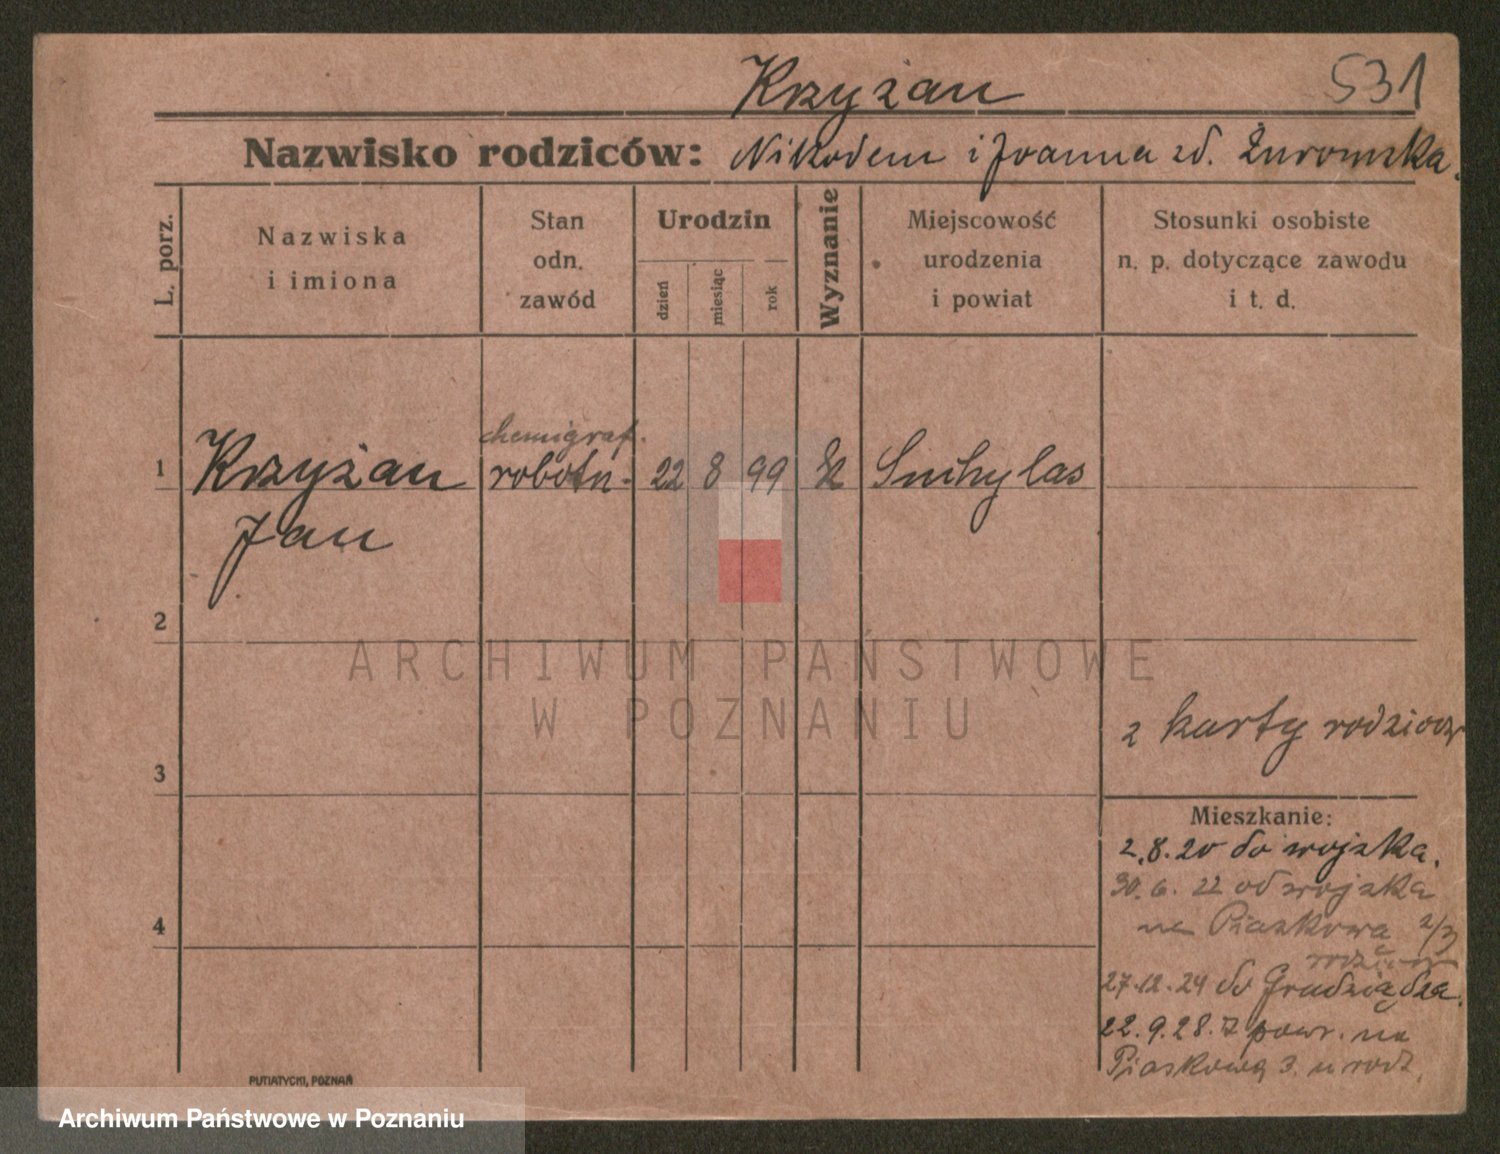 Krzyżan 531
Nazwisko rodziców: Nikodem i Joanna zd. Żuromska.
L. porz.
Nazwiska
i imiona
Stan
odn.
zawód
Urodzin
dzień
miesiąc
rok
Wyznanie
Miejscowość
urodzenia
i powiat
Stosunki osobiste
n. p. dotyczące zawodu
i t. d.
chemigraf.
1 Krzyżan robotn. 22 8 99 Suchylas
Jan
2
ARCHIWUM PAŃSTWOWE
W POZNANIU
2 karty rodziców
3
Mieszkanie:
2.8.20 do wojska.
30.6.22 od wojska
na Piaskowa 2/3
rodziców
4
27.12.24 do Grudziądza.
22.9.28. powr. na
Piaskową 3. u rodz.
PUTIATYCKI, POZNAŃ
Archiwum Państwowe w Poznaniu